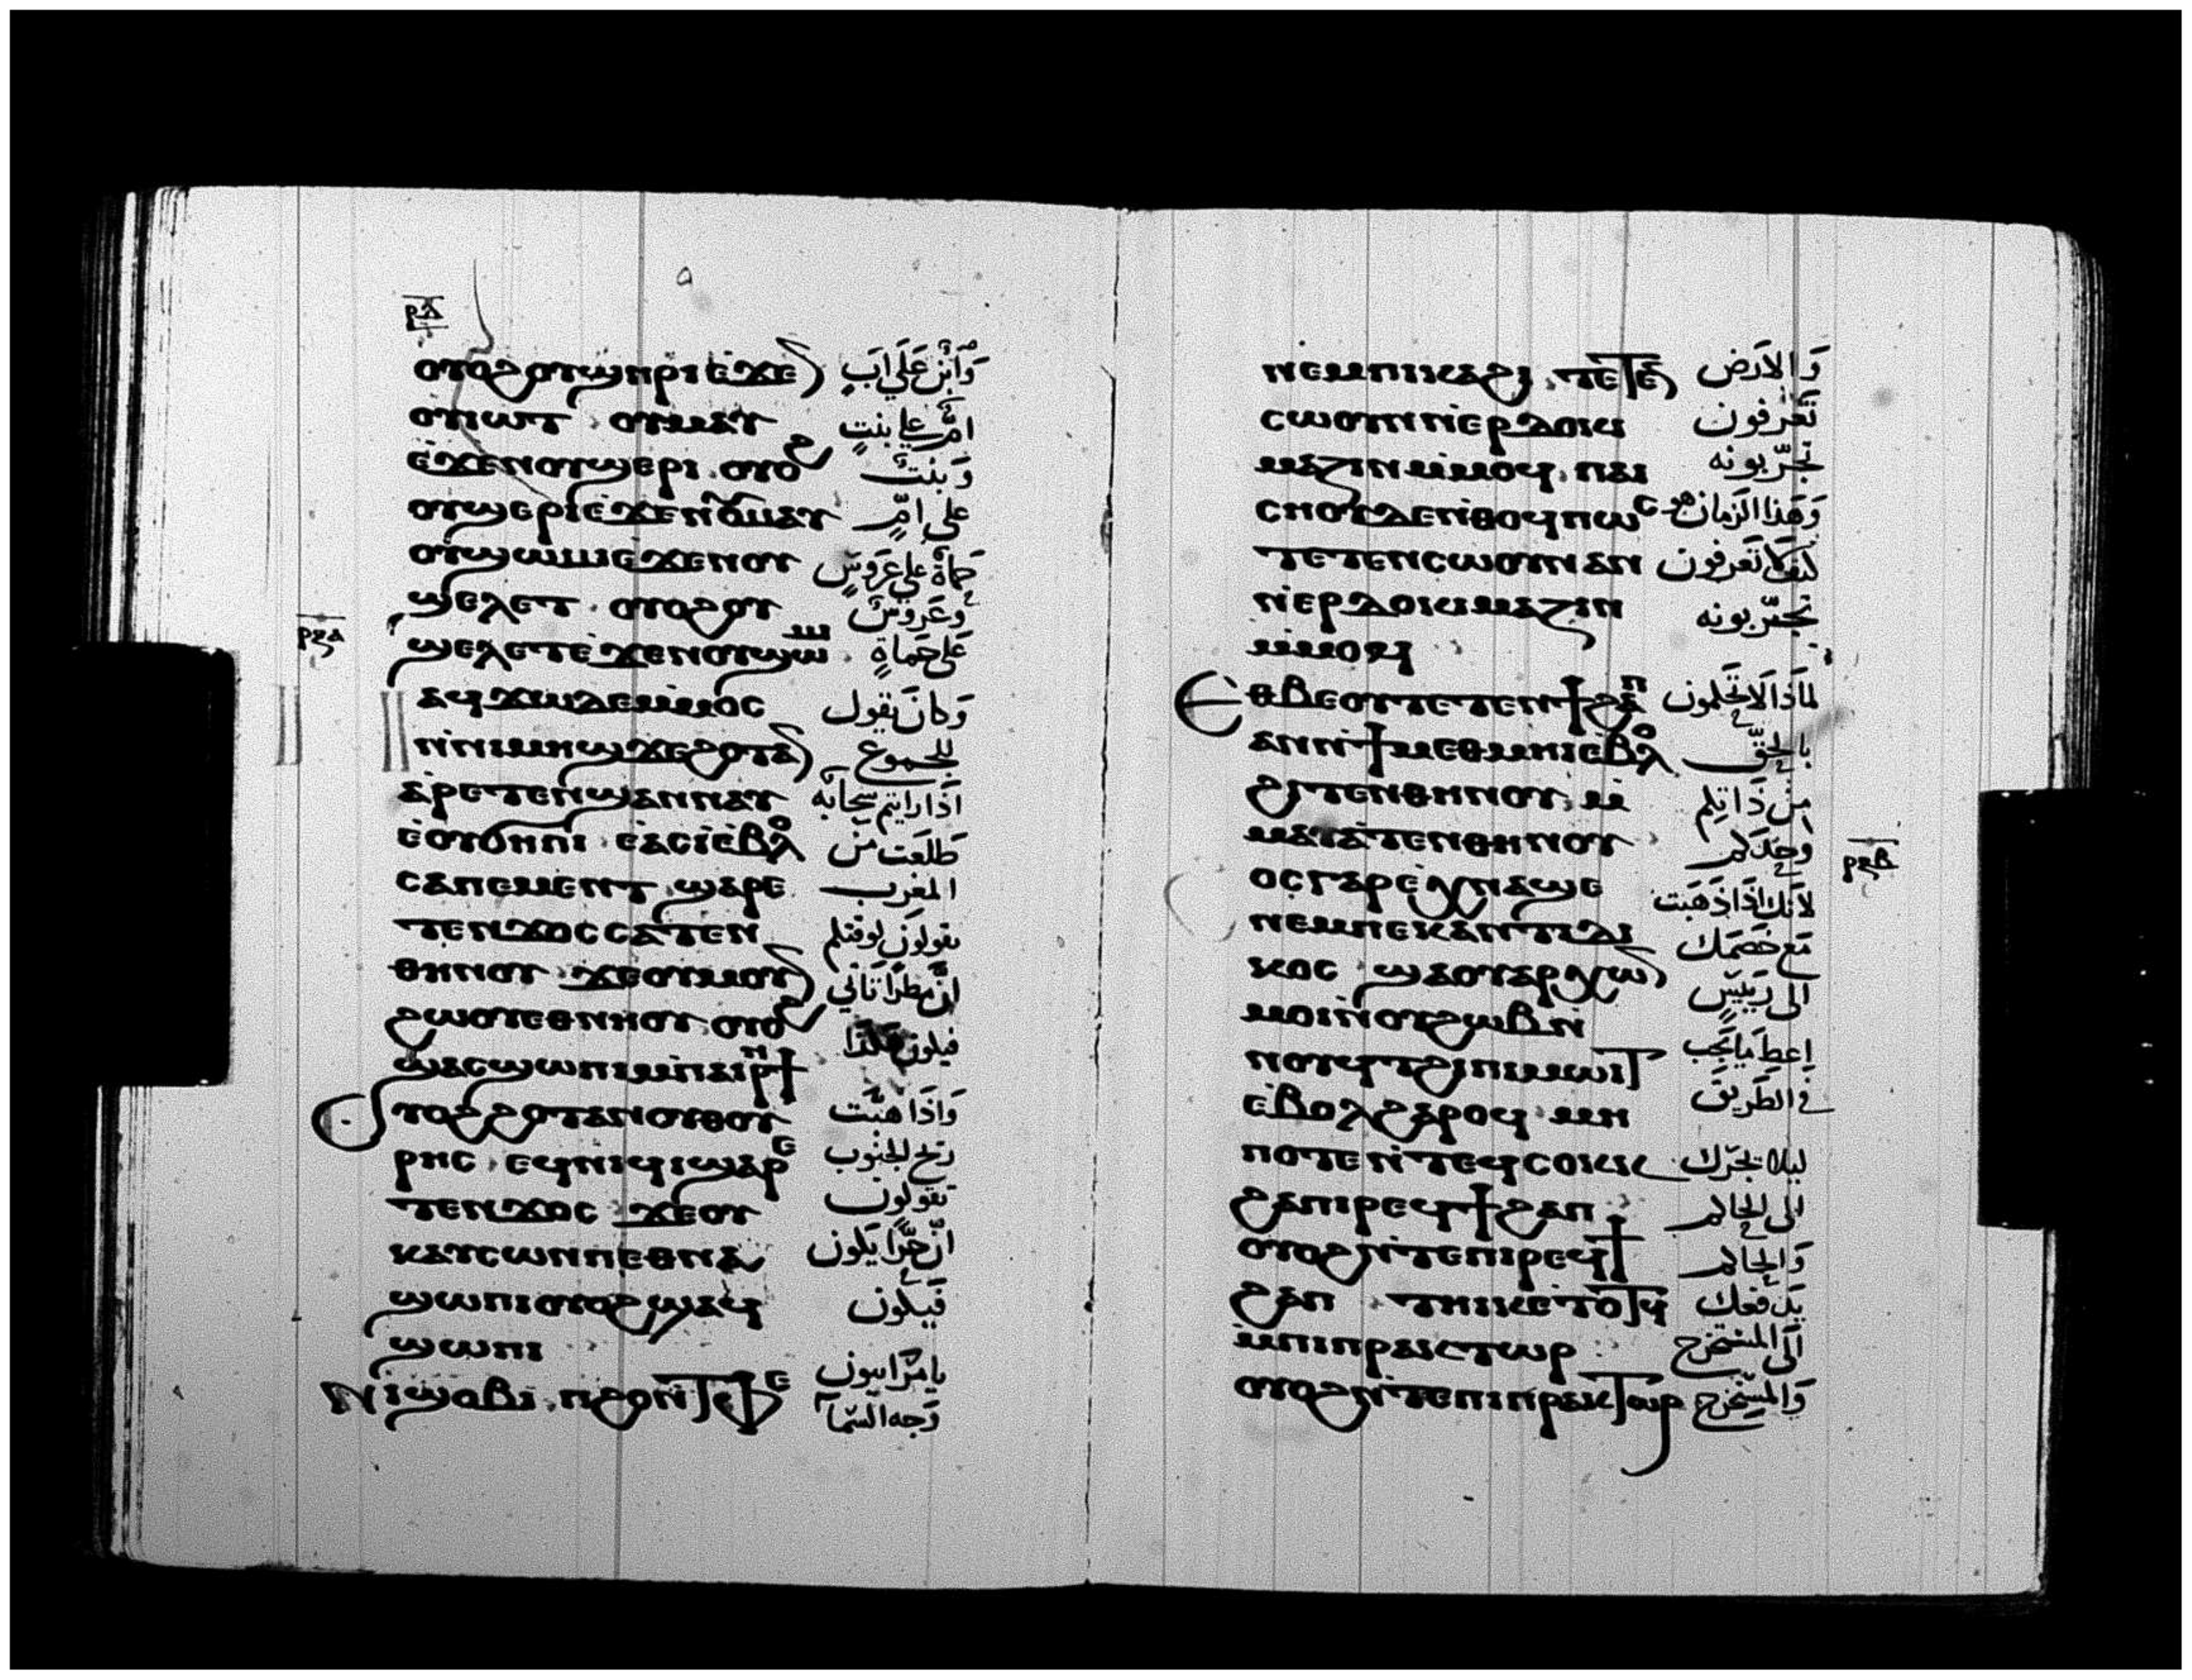 ⲟⲩⲟϩ ⲟⲩϣⲏⲣⲓ ⲉϫⲉ وَابْن عَلَي ابَ
ⲟⲩⲓⲱⲧ ⲟⲩⲙⲁⲩ امٌّ علي بنتٍ
ⲉϫⲉⲛ ⲟⲩϣⲉⲣⲓ ⲟⲩⲟϩ وَبنتٌ
ⲟⲩϣⲉⲣⲓ ⲉϫⲉⲛ ⲟⲩⲙⲁⲩ على امٍّ
ⲟⲩϣⲱⲙⲓ ⲉϫⲉⲛ ⲟⲩ حماة على عَرَوسٍ
ϣⲉⲗⲉⲧ ⲟⲩⲟϩ ⲟⲩ وَعَروسٌ
ⲣⲝⲁ
ϣⲉⲗⲉⲧ ⲉϫⲉⲛ ⲟⲩϣⲱⲙⲓ عَلى حَماةٍ
ⲁϥϫⲱ ⲇⲉ ⲙⲙⲟⲥ وَكانَ يَقول
ⲛⲛⲓⲙⲏϣ ϫⲉ ϩⲟⲧⲁ للجموع
ⲁⲣⲉⲧⲉⲛϣⲁⲛⲛⲁⲩ اذَا رايتم سحابَه
ⲉⲟⲩϭⲏⲡⲓ ⲉⲁⲥⲓ ⲉⲃⲟⲗ طَلَعَت من
ⲥⲁⲡⲉⲙⲉⲛⲧ ϣⲁⲣⲉ المغرب
ⲧⲉⲛϫⲟⲥ ⲥⲁⲧⲉⲛ تقولونَ لوقتكم
ⲑⲏⲛⲟⲩ ϫⲉ ⲟⲩⲙⲟⲩ انَّ مطرًا تَاتي
ϩⲱⲟⲩ ⲉⲑⲛⲏⲟⲩ ⲟⲩⲟϩ
ϣⲁⲥϣⲱⲡⲓ ⲙⲡⲁⲓⲣⲏϯ فيكون هكذا
ⲟⲩⲟϩ ϩⲟⲧⲁⲛ ⲟⲩⲑⲟⲩ وَاذَا هبَّت
ⲣⲏⲥ ⲉϥⲛⲓϥⲓ ϣⲁⲣⲉ ريح الجَنوب
ⲧⲉⲛϫⲟⲥ ϫⲉ ⲟⲩ تقولون
ⲕⲁⲩⲥⲱⲛ ⲡⲉⲑⲛⲁ انّ حَرًّا يَكون
ϣⲱⲡⲓ ⲟⲩⲟϩ ϣⲁϥ فَيكون
ϣⲱⲡⲓ
ⲛⲓϣⲟⲃⲓ ⲡϩⲟ ⲛⲧⲉⲧⲫⲉ يا مرَاييون وَجه السَّما
ⲛⲉⲙ ⲡⲓⲕⲁϩⲓ ⲧⲉⲧⲉ وَالارَض
ⲥⲱⲟⲩⲛ ⲛⲉⲣⲇⲟⲕⲓ تَعرَفون
ⲙⲁⲍⲓⲛ ⲙⲙⲟϥ ⲡⲁⲓ تجرّبونه
ⲥⲏⲟⲩ ⲇⲉ ⲛⲑⲟϥ ⲡⲱⲥ وَهَذا الزمان
ⲧⲉⲧⲉⲛⲥⲱⲟⲩⲛ ⲁⲛ كيف لا تَعرفون
ⲛⲉⲣⲇⲟⲕⲓⲙⲁⲍⲓⲛ تجرّبونه
ⲙⲙⲟϥ
ⲉⲑⲃⲉⲟⲩ ⲧⲉⲧⲉⲛϯϩⲁⲡ لماذَا لاتحكمون
ⲁⲛ ⲛϯⲙⲉⲑⲙⲏⲓ ⲉⲃⲟⲗ بالحقّ
ϩⲓⲧⲉⲛ ⲑⲏⲛⲟⲩ ⲙ من ذاتكم
ⲙⲁⲩⲁⲧⲉⲛ ⲑⲏⲛⲟⲩ وَحدَكم
ⲣⲝⲃ
ⲟⲥ ⲅⲁⲣ ⲉⲕⲛⲁϣⲉ لانّك اذَا ذَهَبت
ⲛⲉⲙ ⲡⲉⲕⲁⲛⲧⲓⲇⲓ مَع خَصمَك
ⲕⲟⲥ ϣⲁ ⲟⲩⲁⲣⲭⲱ الى رَييسٍ
ⲙⲟⲓ ⲛⲟⲩϩⲱⲃ ⲛ
ⲛⲟⲩϥ ϩⲓ ⲡⲓⲙⲱⲓⲧ اِعطِ مَا يَجب
ⲉⲃⲟⲗ ϩⲁⲣⲟϥ ⲙⲏ في الطَريق
ⲡⲟⲧⲉ ⲛⲧⲉϥⲥⲟⲕⲕ ليلا يجرّك
ϩⲁ ⲡⲓⲣⲉϥϯϩⲁⲡ الى الحاكم
ⲟⲩⲟϩ ⲛⲧⲉ ⲡⲓⲣⲉϥϯ وَالحاكم
ϩⲁⲡ ⲧⲏⲓⲕ ⲉⲧⲟⲧϥ يَدفعك
ⲙⲡⲓⲡⲣⲁⲕⲧⲱⲣ الَى المستخرج
ⲟⲩⲟϩ ⲛⲧⲉ ⲡⲓⲡⲣⲁⲕⲧⲱⲣ وَالمستخرج